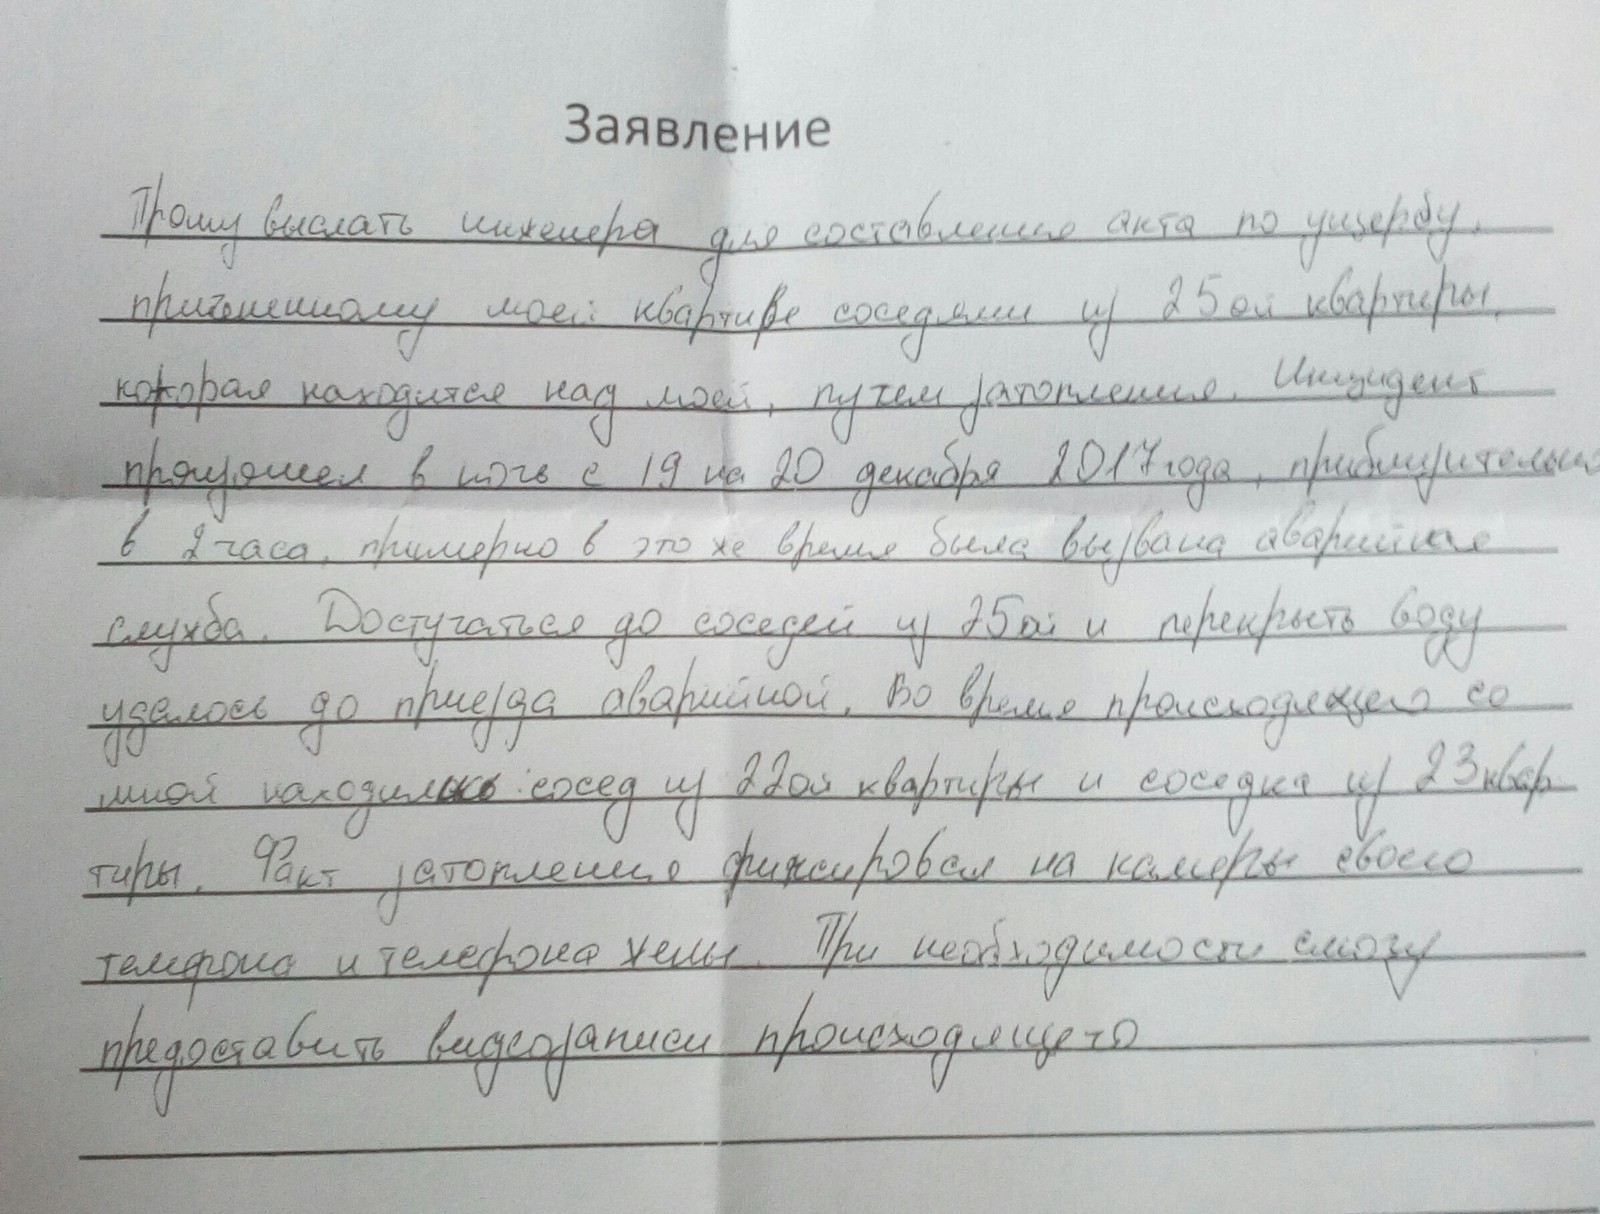 Заявление
Прошу выслать инженера для составления акта по ущербу,
причиненному моей квартире соседями из 25ой квартиры,
которая находится над моей, путем затопления. Инцидент
произошел в ночь с 19 на 20 декабря 2017 года, приблизительно
в 2 часа, примерно в это же время была вызвана аварийная
служба. Достучаться до соседей из 25ой и перекрыть воду
удалось до приезда аварийной. Во время происходящего со
мной находились сосед из 22ой квартиры и соседка из 23 квар
тиры. Факт затопления фиксировал на камеры своего
телефона и телефона жены. При необходимости смогу
предоставить видеозаписи происходящего